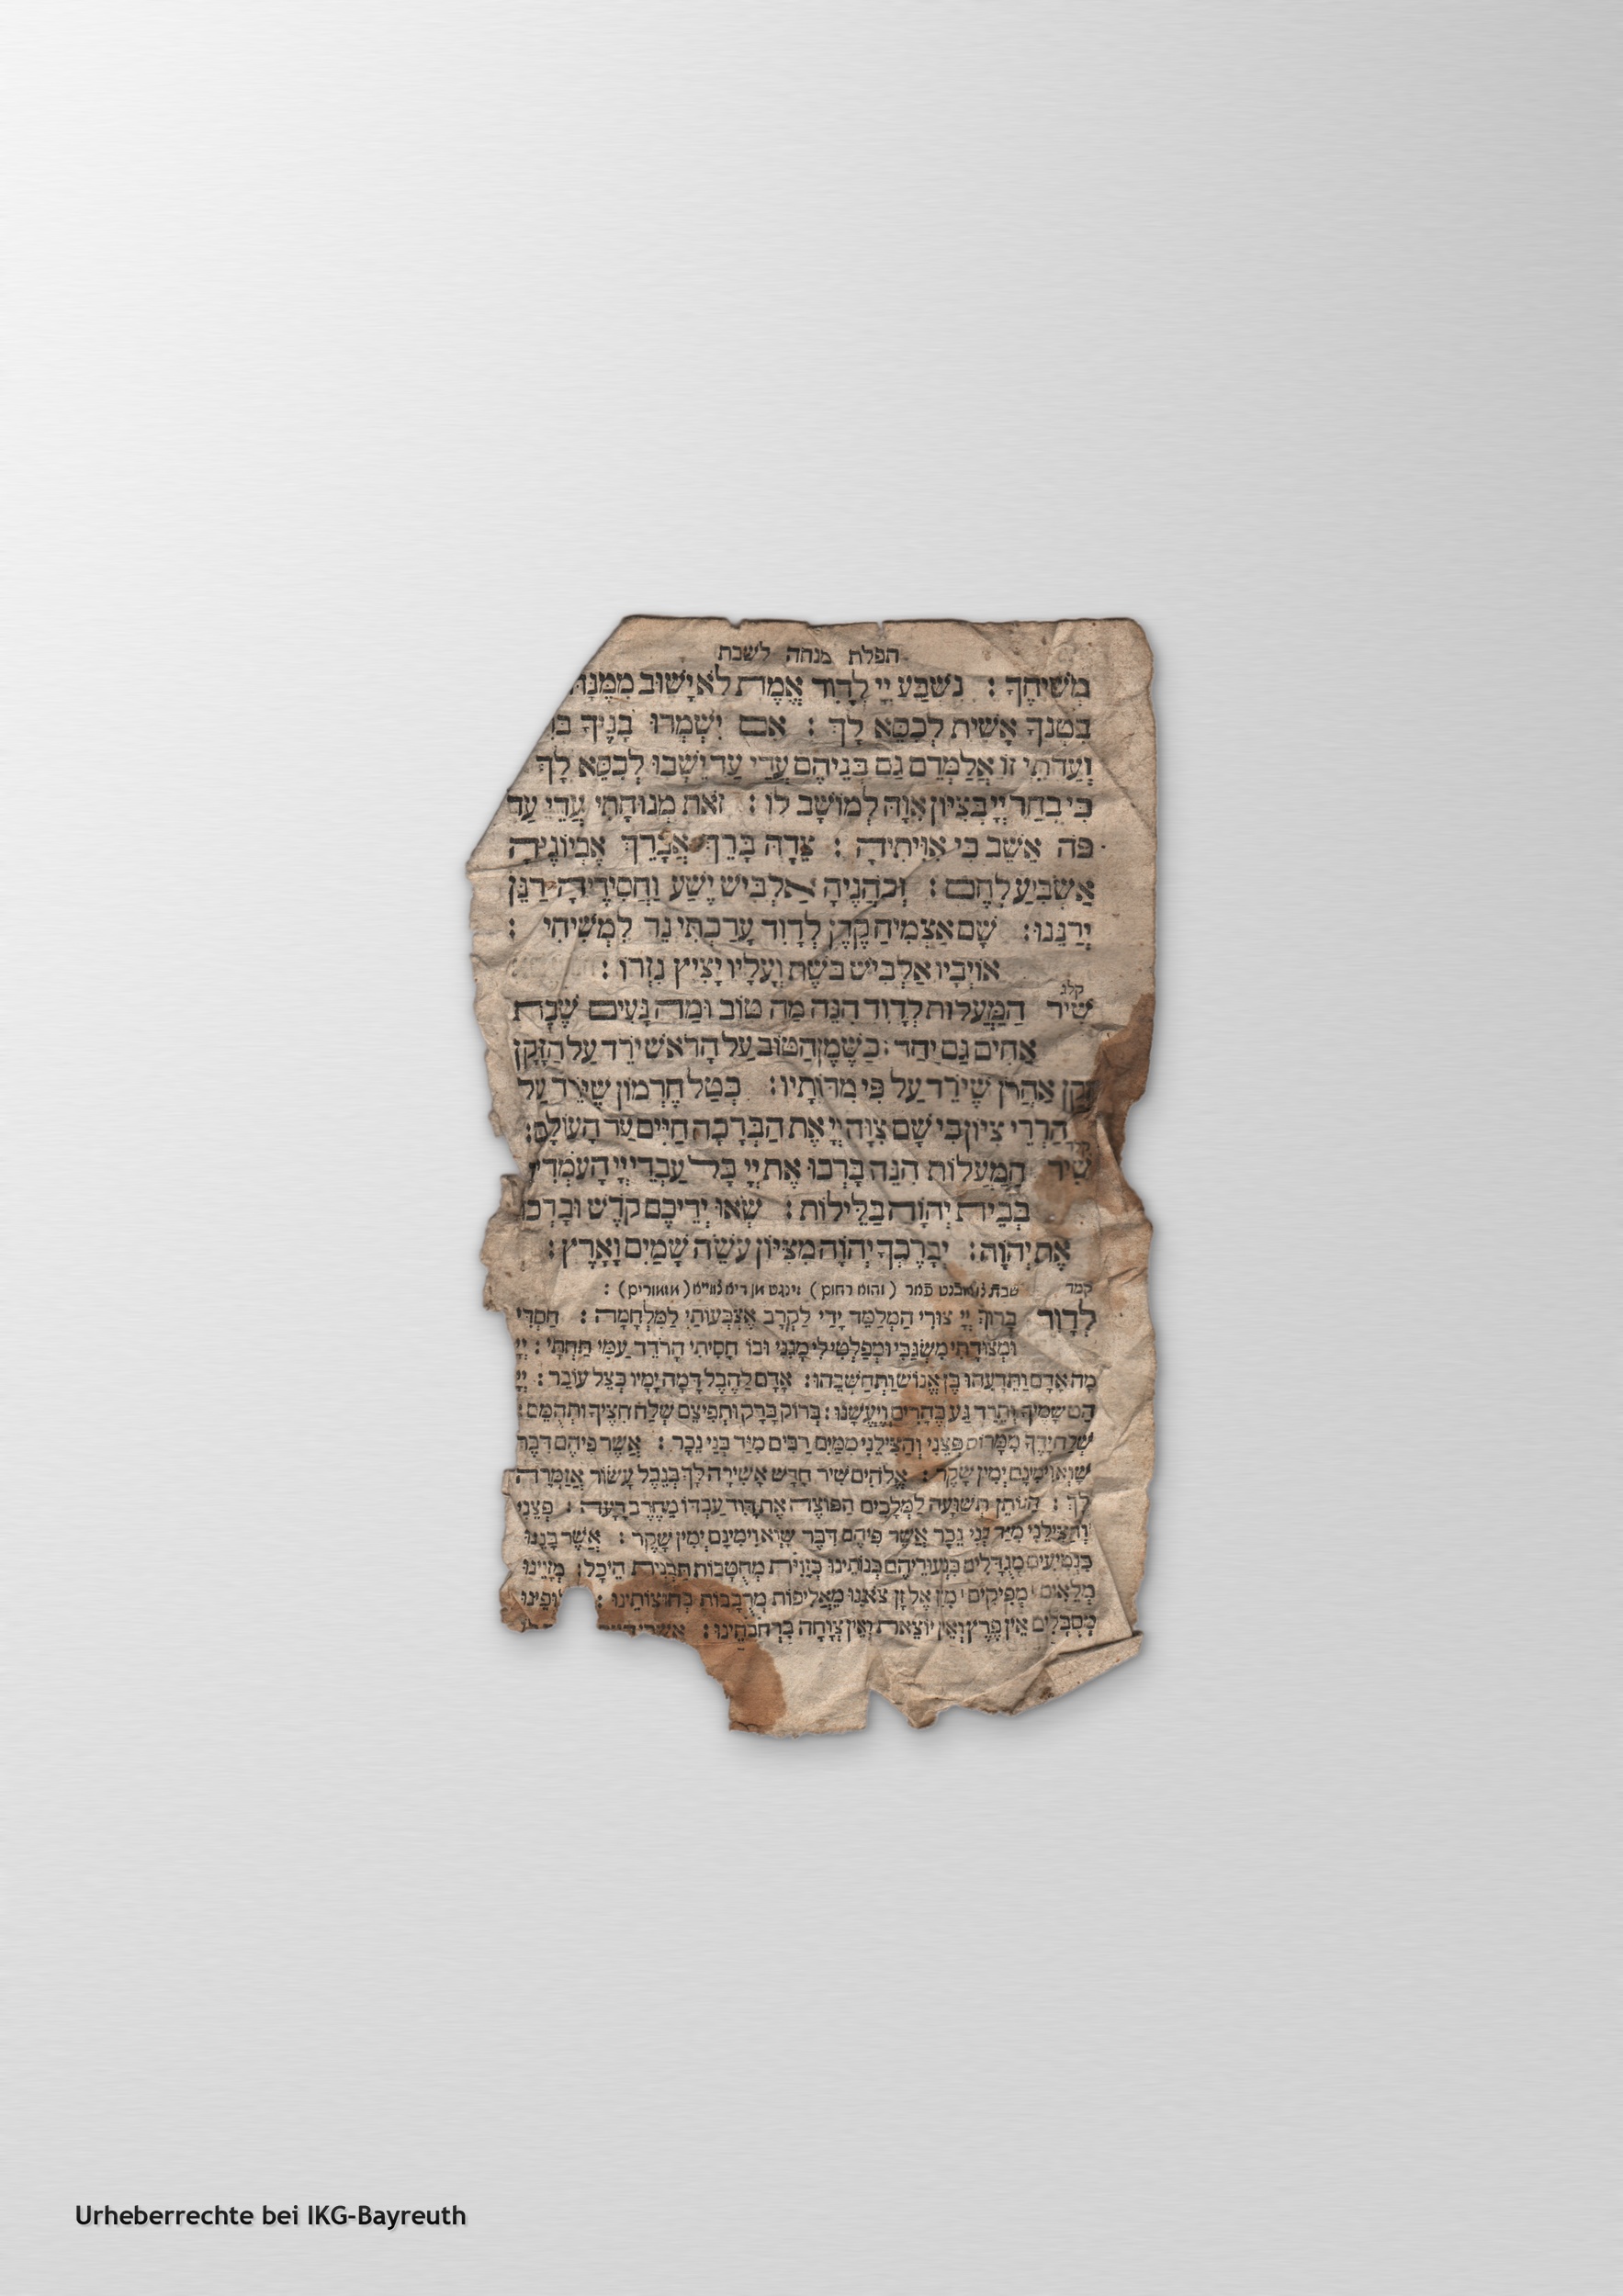 תפלת מנחה לשבת
מְשִׁיחֶךָ : נִשְׁבַּע יְיָ לְדָוִד אֱמֶת לֹא יָשׁוּב מִמֶּנָּה
בִטְנְךָ אָשִׁית לְכִסֵּא לָךְ : אִם יִשְׁמְרוּ בָנֶיךָ
וְעֵדֹתִי זוֹ אֲלַמְּדֵם גַּם בְּנֵיהֶם עֲדֵי עַד יֵשְׁבוּ לְכִסֵּא לָךְ
כִּי בָחַר יְיָ בְּצִיּוֹן אִוָּהּ לְמוֹשָׁב לוֹ : זֹאת מְנוּחָתִי עֲדֵי עַד
פֹּה אֵשֵׁב כִּי אִוִּיתִיהָ : צֵדָהּ בָּרֵךְ אֲבָרֵךְ אֶבְיוֹנֶיהָ
אַשְׂבִּיעַ לָחֶם : וְכֹהֲנֶיהָ אַלְבִּישׁ יֶשַׁע וַחֲסִידֶיהָ רַנֵּן
יְרַנֵּנוּ : שָׁם אַצְמִיחַ קֶרֶן לְדָוִד עָרַכְתִּי נֵר לִמְשִׁיחִי :
אוֹיְבָיו אַלְבִּישׁ בֹּשֶׁת וְעָלָיו יָצִיץ נִזְרוֹ :
קלג
שִׁיר הַמַּעֲלוֹת לְדָוִד הִנֵּה מַה טּוֹב וּמַה נָּעִים שֶׁבֶת
אַחִים גַּם יָחַד : כַּשֶּׁמֶן הַטּוֹב עַל הָרֹאשׁ יֹרֵד עַל הַזָּקָן
זְקַן אַהֲרֹן שֶׁיֹּרֵד עַל פִּי מִדּוֹתָיו : כְּטַל חֶרְמוֹן שֶׁיֹּרֵד עַל
הַרְרֵי צִיּוֹן כִּי שָׁם צִוָּה יְיָ אֶת הַבְּרָכָה חַיִּים עַד הָעוֹלָם :
שִׁיר הַמַּעֲלוֹת הִנֵּה בָּרְכוּ אֶת יְיָ כָּל עַבְדֵי יְיָ הָעֹמְדִים
בְּבֵית יְהוָֹה בַּלֵּילוֹת : שְׂאוּ יְדֵיכֶם קֹדֶשׁ וּבָרְכוּ
אֶת יְהוָֹה : יְבָרֶכְךָ יְהוָֹה מִצִּיּוֹן עֹשֵׂה שָׁמַיִם וָאָרֶץ :
קמד שבת (והוא רחום) זינגט מן דיא
לְדָוִד בָּרוּךְ יְיָ צוּרִי הַמְלַמֵּד יָדַי לַקְרָב אֶצְבְּעוֹתַי לַמִּלְחָמָה : חַסְדִּי
וּמְצוּדָתִי מִשְׂגַּבִּי וּמְפַלְטִי לִי מָגִנִּי וּבוֹ חָסִיתִי הָרֹדֵד עַמִּי תַחְתָּי : יְיָ
מָה אָדָם וַתֵּדָעֵהוּ בֶּן אֱנוֹשׁ וַתְּחַשְּׁבֵהוּ : אָדָם לַהֶבֶל דָּמָה יָמָיו כְּצֵל עוֹבֵר : יְיָ
הַט שָׁמֶיךָ וְתֵרֵד גַּע בֶּהָרִים וְיֶעֱשָׁנוּ : בְּרוֹק בָּרָק וּתְפִיצֵם שְׁלַח חִצֶּיךָ וּתְהֻמֵּם :
שְׁלַח יָדֶיךָ מִמָּרוֹם פְּצֵנִי וְהַצִּילֵנִי מִמַּיִם רַבִּים מִיַּד בְּנֵי נֵכָר : אֲשֶׁר פִּיהֶם דִּבֶּר
שָׁוְא וִימִינָם יְמִין שָׁקֶר : אֱלֹהִים שִׁיר חָדָשׁ אָשִׁירָה לָּךְ בְּנֵבֶל עָשׂוֹר אֲזַמְּרָה
לָךְ : הַנּוֹתֵן תְּשׁוּעָה לַמְּלָכִים הַפּוֹצֶה אֶת דָּוִד עַבְדּוֹ מֵחֶרֶב רָעָה : פְּצֵנִי
וְהַצִּילֵנִי מִיַּד בְּנֵי נֵכָר אֲשֶׁר פִּיהֶם דִּבֶּר שָׁוְא וִימִינָם יְמִין שָׁקֶר : אֲשֶׁר בָּנֵינוּ
כִּנְטִיעִים מְגֻדָּלִים בִּנְעוּרֵיהֶם בְּנוֹתֵינוּ כְזָוִיֹּת מְחֻטָּבוֹת תַּבְנִית הֵיכָל : מְזָוֵינוּ
מְלֵאִים מְפִיקִים מִזַּן אֶל זַן צֹאנֵנוּ מַאֲלִיפוֹת מְרֻבָּבוֹת בְּחוּצוֹתֵינוּ :
מְסֻבָּלִים אֵין פֶּרֶץ וְאֵין יוֹצֵאת וְאֵין צְוָחָה בִּרְחֹבֹתֵינוּ : אַשְׁרֵי
Urheberrechte bei IKG-Bayreuth